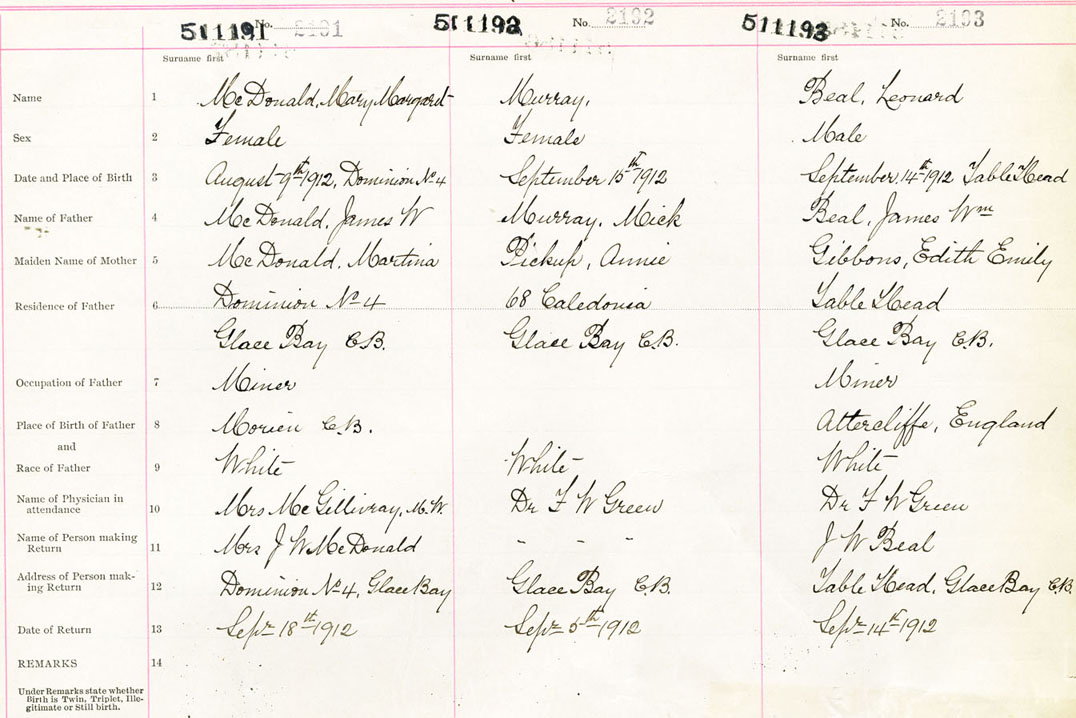 511191 No. 2191 511192 No. 2192 511193 No. 2193
Surname first Surname first Surname first
Name 1 McDonald, Mary Margaret Murray, Beal, Leonard
Sex 2 Female Female Male
Date and Place of Birth 3 August 9th 1912, Dominion No 4 September 15th 1912 September 14th 1912 Table Head
Name of Father 4 McDonald, James W Murray, Mick Beal, James Wm
Maiden Name of Mother 5 McDonald, Martina Pickup, Annie Gibbons, Edith Emily
Residence of Father 6 Dominion No 4 68 Caledonia Table Head
Glace Bay C.B. Glace Bay C.B. Glace Bay C.B.
Occupation of Father 7 Miner Miner
Place of Birth of Father 8 Morien C.B. Attercliffe, England
and
Race of Father 9 White White White
Name of Physician in
attendance 10 Mrs McGillivray, M.W. Dr F W Green Dr F W Green
Name of Person making
Return 11 Mrs J W McDonald - - - J W Beal
Address of Person mak-
ing Return 12 Dominion No 4, Glace Bay Glace Bay C.B. Table Head, Glace Bay C.B.
Date of Return 13 Sepr 18th 1912 Sepr 5th 1912 Sepr 14th 1912
REMARKS 14
Under Remarks state whether
Birth is Twin, Triplet, Ille-
gitimate or Still birth.